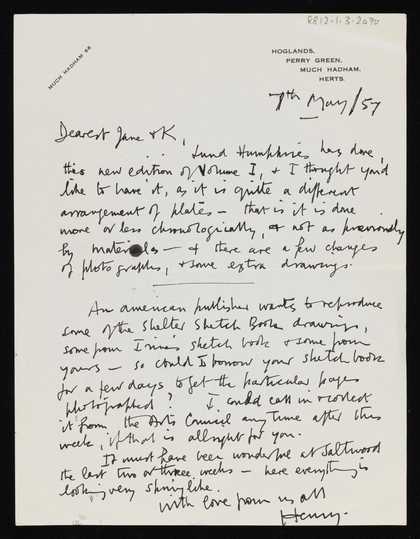 8812.1.3.2070
MUCH HADHAM 66
HOGLANDS,
PERRY GREEN,
MUCH HADHAM,
HERTS.
7th May/57
Dearest Jane & K,
Lund Humphries has done,
this new edition of Volume I, & I thought you'd
like to have it, as it is quite a different
arrangement of plates – that is it is done
more or less chronologically, & not as previously
by materials – & there are a few changes
of photographs, & some extra drawings.
An american publisher wants to reproduce
some of the Shelter Sketch Book drawings,
some from Irina's sketch book & some from
yours – so could I borrow your sketch book
for a few days, to get the particular pages
photographed? I could call in & collect
it from the Arts Council any time after this
week, if that is allright for you.
It must have been wonderful at Saltwood
the last two or three weeks – here everything is
looking very spring like.
With love from us all
Henry.